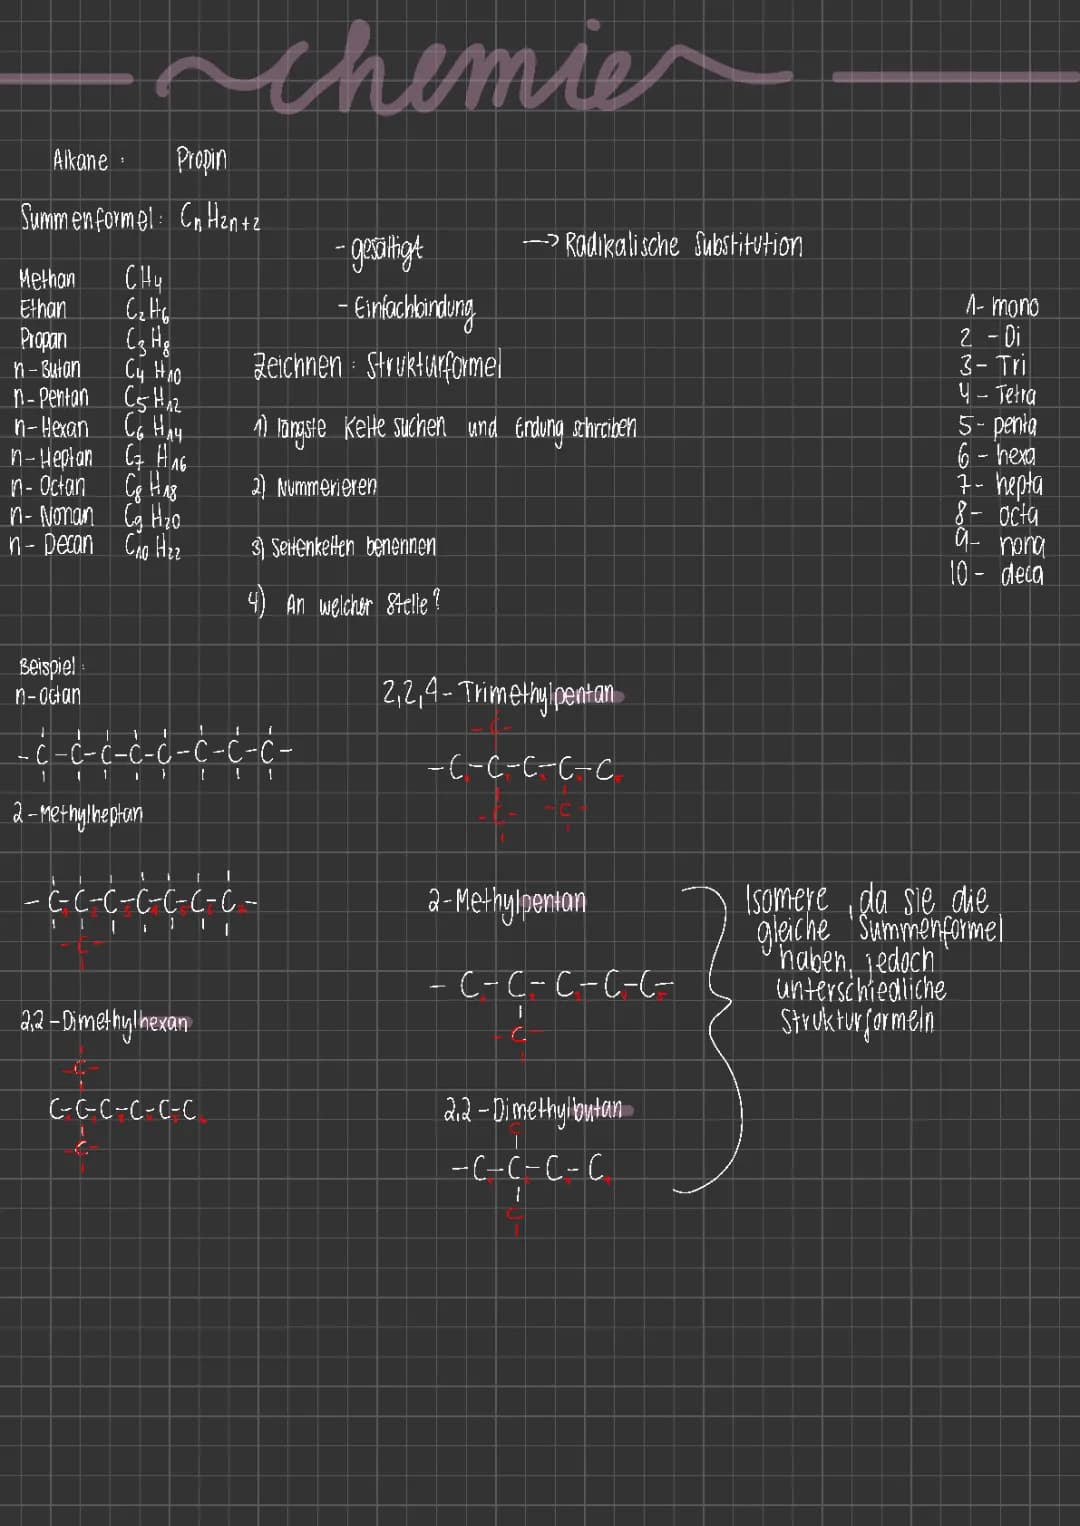 chemie
Alkane : Propin
Summenformel: CnH2n+2
- gesättigt → Radikalische Substitution
- Einfachbindung
Methan CH4
Ethan C2H6
Propan C3H8
n-Butan C4H10
n-Pentan C5H12
n-Hexan C6H14
n-Heptan C7H16
n-Octan C8H18
n-Nonan C9H20
n-Decan C10H22
Zeichnen : Strukturformel
1) längste Kette suchen und Endung schreiben
2) Nummerieren
3) Seitenketten benennen
4) An welcher Stelle?
1- mono
2 - Di
3- Tri
4- Tetra
5- penta
6- hexa
7- hepta
8- octa
9- nona
10- deca
Beispiel:
n-octan
-C-C-C-C-C-C-C-C-
2-Methylheptan
-C-C-C-C-C-C-C-
-C-
2,2-Dimethylhexan
-C-
C-C-C-C-C-C
-C-
2,2,4-Trimethylpentan
-C-
-C-C-C-C-C
-C- -C-
2-Methylpentan
-C-C-C-C-C-
-C-
2,2-Dimethylbutan
C
-C-C-C-C
C
Isomere, da sie die
gleiche Summenformel
haben, jedoch
unterschiedliche
Strukturformeln